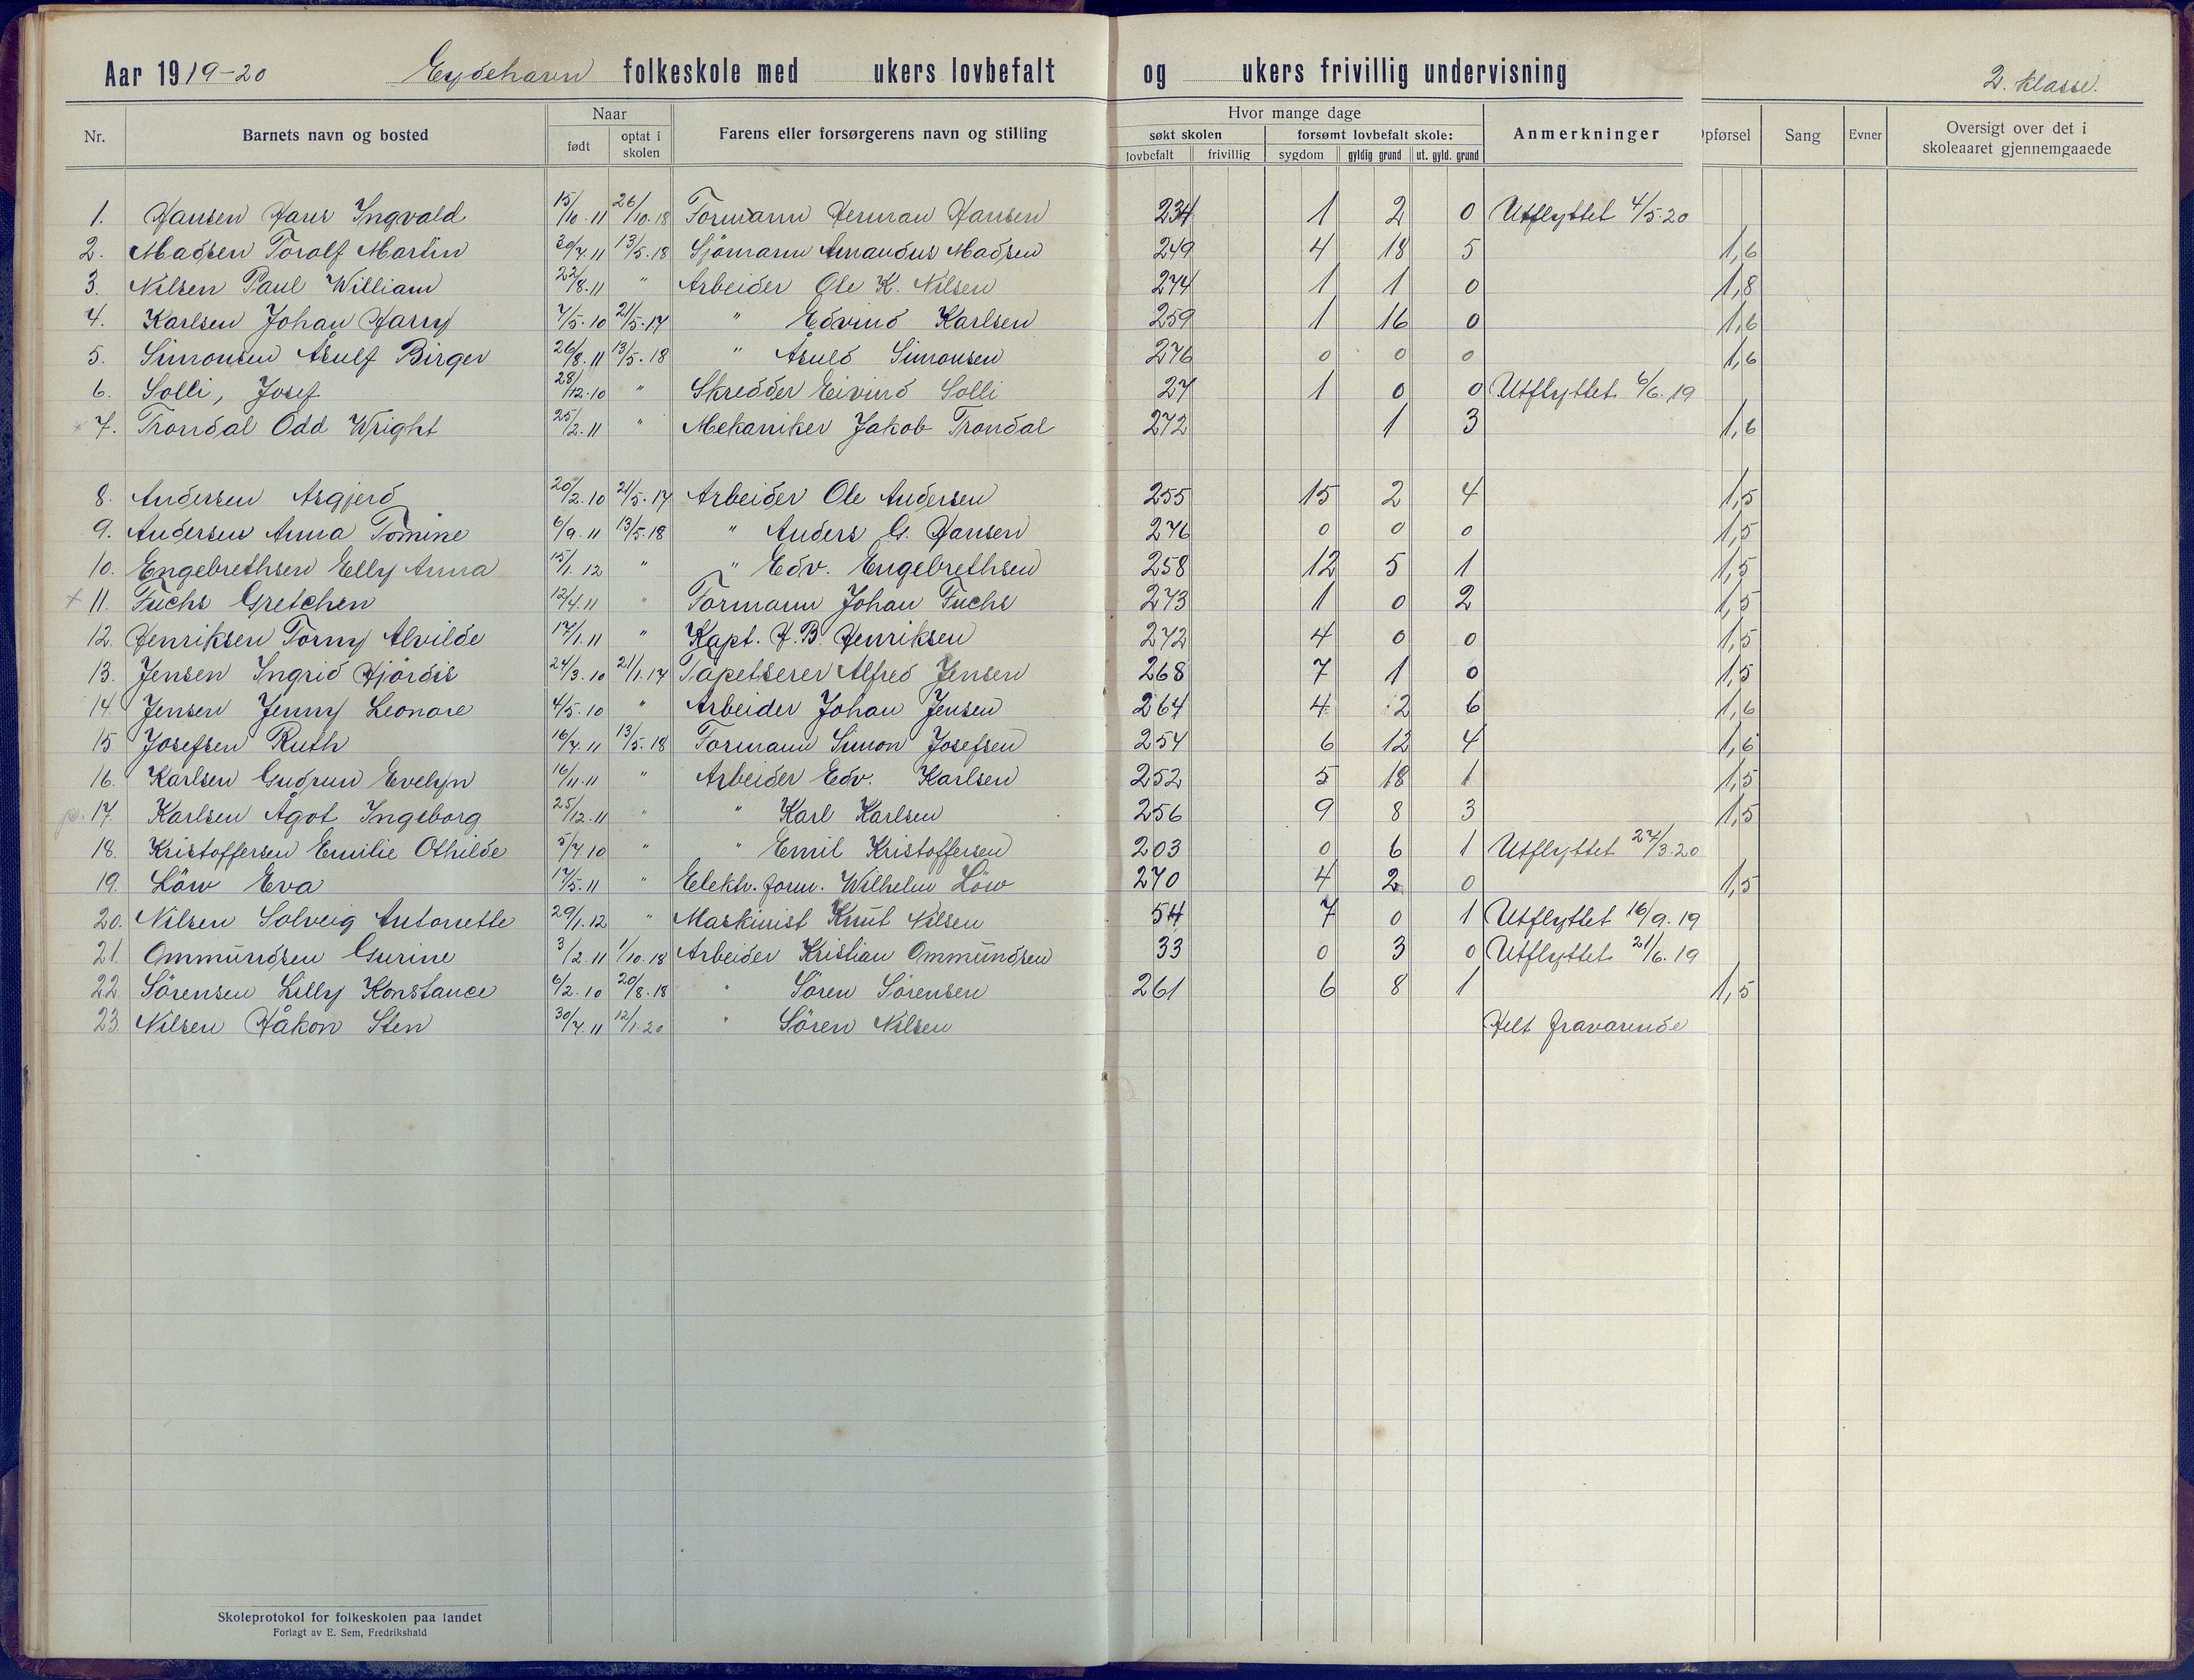 Aar 1919-20 Eydehavn folkeskole med ukers lovbefalt og ukers frivillig undervisning 2. klasse.
Nr. Barnets navn og bosted Naar født optat i skolen Farens eller forsørgerens navn og stilling Hvor mange dage søkt skolen lovbefalt frivillig forsømt lovbefalt skole: sygdom gyldig grund ut. gyld. grund Anmerkninger Opførsel Sang Evner Oversigt over det i skoleaaret gjennemgaaede
1. Hansen Hans Ingvald 15/10-11 26/10-18 Formann Herman Hansen 234 1 2 0 Utflyttet 4/5-20
2. Madsen Torolf Martin 30/7.11 13/5.18 Sjömann Amandus Madsen 249 4 18 5 1,6
3. Nilsen Paul William 22/8.11 " Arbeider Ole K. Nilsen 274 1 1 0 1,8
4. Karlsen Johan Harry 7/5.10 21/5.17 " Edvind Karlsen 259 1 16 0 1,6
5. Simonsen Åsulf Birger 26/8.11 13/5.18 " Åsuld Simonsen 276 0 0 0 1,6
6. Solli, Josef 28/12.10 " Skredder Eivind Solli 27 1 0 0 Utflyttet 6/6.19
x 7. Trondal Odd Wright 25/2.11 " Mekaniker Jakob Trondal 272 1 3 1,6
8. Andersen Asgjerd 20/2.10 21/5.17 Arbeider Ole Andersen 255 15 2 4 1,5
9. Andersen Anna Tomine 6/9.11 13/5.18 " Anders G. Hansen 276 0 0 0 1,5
10. Engebrethsen Elly Anna 15/1.12 " " Edv. Engebrethsen 258 12 5 1 1,5
x 11. Fuchs Gretchen 12/4.11 " Formann Johan Fuchs 273 1 0 2 1,5
12. Henriksen Torny Alvilde 17/1.11 " Kapt. H.B. Henriksen 272 4 0 0 1,5
13. Jensen Ingrid Hjördis 24/3.10 21/1.17 Tapetserer Alfred Jensen 268 7 1 0 1,5
14. Jensen Jenny Leonore 4/5.10 " Arbeider Johan Jensen 264 4 2 6 1,6
15. Josefsen Ruth 16/7.11 13/5.18 Formann Simon Josefsen 254 6 12 4 1,6
16. Karlsen Gudrun Evelyn 16/11.11 " Arbeider Edv. Karlsen 252 5 18 1 1,5
17. Karlsen Ågot Ingeborg 25/12.11 " " Karl Karlsen 256 9 8 3 1,5
18. Kristoffersen Emilie Othilde 5/7.10 " " Emil Kristoffersen 203 0 6 1 Utflyttet 27/3.20
19. Löw Eva 17/5.11 " Elektr. form. Wilhelm Löw 270 4 2 0 1,5
20. Nilsen Solveig Antonette 29/1.12 " Maskinist Knut Nilsen 54 7 0 1 Utflyttet 16/9.19
21. Ommundsen Gurine 3/2.11 1/10.18 Arbeider Kristian Ommundsen 33 0 3 0 Utflyttet 21/6.19
22. Sörensen Lilly Konstance 6/2.10 20/8.18 " Sören Sörensen 261 6 8 1 1,5
23. Nilsen Håkon Sten 30/7.11 12/1.20 " Sören Nilsen Helt fraværende
Skoleprotokol for folkeskolen paa landet
Forlagt av E. Sem, Fredrikshald